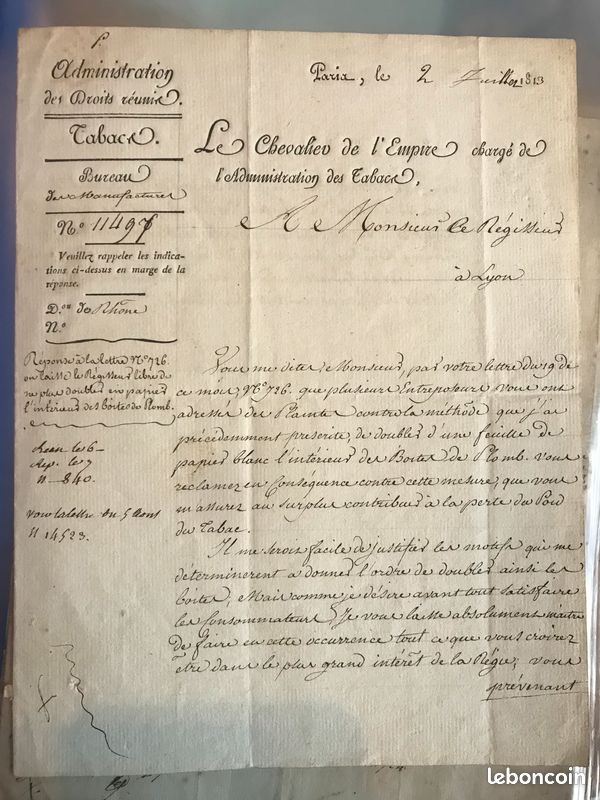 P.
Administration
des Droits réunis.
Tabacs.
Bureau
des Manufactures
N.º 11497
Veuillez rappeler les indica-
tions ci-dessus en marge de la
réponse.
D.on du Rhône
N.º
Réponse à la lettre N.º 726.
on laisse le Régisseur libre de
ne plus doubler en papier
l'intérieur des boites de Plomb.
Reçue le 6
Rep. le 7
N 840.
voir la lettre du 5 Aout
N 14523.
Paris, le 2 Juillet 1813
Le Chevalier de l'Empire chargé de
l'Administration des Tabacs,
A Monsieur le Régisseur
à Lyon
Vous me dites, Monsieur, par votre lettre du 19 de
ce mois, N.º 726. que plusieurs Entreposeurs vous ont
adressé des Plaintes contre la méthode que j'ai
précédemment prescrite, de doubler d'une feuille de
papier blanc l'intérieur des Boites de Plomb. vous
réclamez en Conséquence contre cette mesure, que vous
m'assurez au surplus contribuer à la perte du Poids
du Tabac.
Il me serois facile de justifier les motifs qui me
déterminerent a donner l'ordre de doubler ainsi les
boites, Mais comme je désire avant tout satisfaire
les Consommateurs, Je vous laisse absolument maitre
de faire en cette occurrence tout ce que vous croirez
être dans le plus grand intérêt de la Régie; vous
prévenant
leboncoin